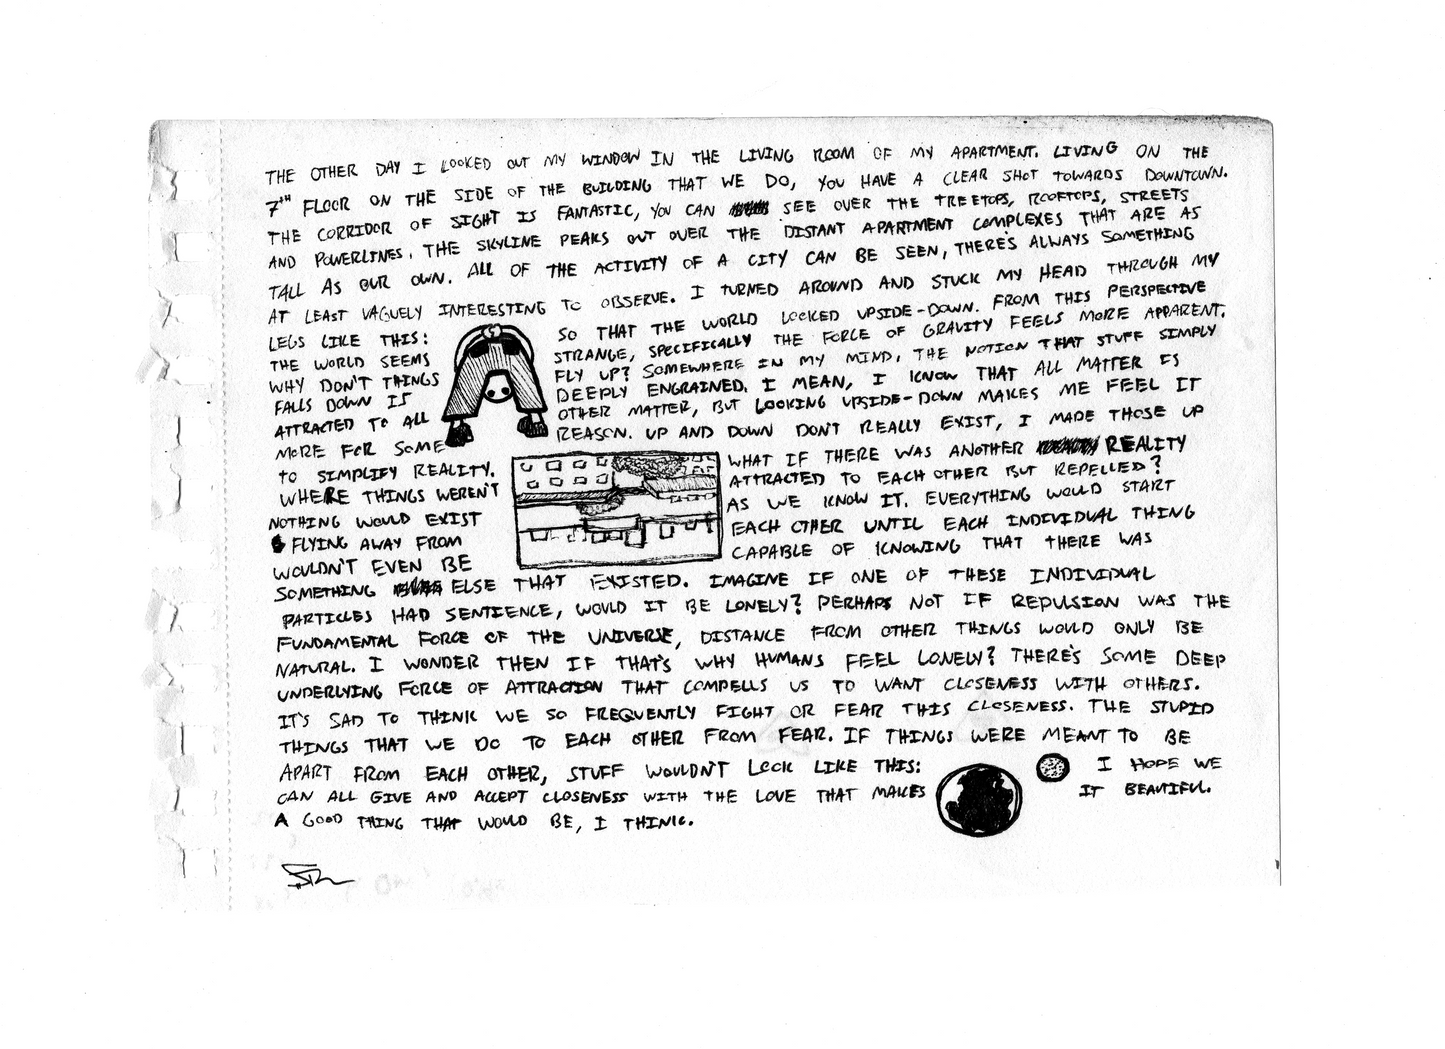 THE OTHER DAY I LOOKED OUT MY WINDOW IN THE LIVING ROOM OF MY APARTMENT. LIVING ON THE
7TH FLOOR ON THE SIDE OF THE BUILDING THAT WE DO, YOU HAVE A CLEAR SHOT TOWARDS DOWNTOWN.
THE CORRIDOR OF SIGHT IS FANTASTIC, YOU CAN SEE OVER THE TREETOPS, ROOFTOPS, STREETS
AND POWERLINES. THE SKYLINE PEAKS OUT OVER THE DISTANT APARTMENT COMPLEXES THAT ARE AS
TALL AS OUR OWN. ALL OF THE ACTIVITY OF A CITY CAN BE SEEN, THERE'S ALWAYS SOMETHING
AT LEAST VAGUELY INTERESTING TO OBSERVE. I TURNED AROUND AND STUCK MY HEAD THROUGH MY
LEGS LIKE THIS: SO THAT THE WORLD LOOKED UPSIDE-DOWN. FROM THIS PERSPECTIVE
THE WORLD SEEMS STRANGE, SPECIFICALLY THE FORCE OF GRAVITY FEELS MORE APPARENT.
WHY DON'T THINGS FLY UP? SOMEWHERE IN MY MIND, THE NOTION THAT STUFF SIMPLY
FALLS DOWN IS DEEPLY ENGRAINED. I MEAN, I KNOW THAT ALL MATTER IS
ATTRACTED TO ALL OTHER MATTER, BUT LOOKING UPSIDE-DOWN MAKES ME FEEL IT
MORE FOR SOME REASON. UP AND DOWN DON'T REALLY EXIST, I MADE THOSE UP
TO SIMPLIFY REALITY. WHAT IF THERE WAS ANOTHER REALITY
WHERE THINGS WEREN'T ATTRACTED TO EACH OTHER BUT REPELLED?
NOTHING WOULD EXIST AS WE KNOW IT. EVERYTHING WOULD START
FLYING AWAY FROM EACH OTHER UNTIL EACH INDIVIDUAL THING
WOULDN'T EVEN BE CAPABLE OF KNOWING THAT THERE WAS
SOMETHING ELSE THAT EXISTED. IMAGINE IF ONE OF THESE INDIVIDUAL
PARTICLES HAD SENTIENCE, WOULD IT BE LONELY? PERHAPS NOT IF REPULSION WAS THE
FUNDAMENTAL FORCE OF THE UNIVERSE, DISTANCE FROM OTHER THINGS WOULD ONLY BE
NATURAL. I WONDER THEN IF THAT'S WHY HUMANS FEEL LONELY? THERE'S SOME DEEP
UNDERLYING FORCE OF ATTRACTION THAT COMPELLS US TO WANT CLOSENESS WITH OTHERS.
IT'S SAD TO THINK WE SO FREQUENTLY FIGHT OR FEAR THIS CLOSENESS. THE STUPID
THINGS THAT WE DO TO EACH OTHER FROM FEAR. IF THINGS WERE MEANT TO BE
APART FROM EACH OTHER, STUFF WOULDN'T LOOK LIKE THIS: I HOPE WE
CAN ALL GIVE AND ACCEPT CLOSENESS WITH THE LOVE THAT MAKES IT BEAUTIFUL.
A GOOD THING THAT WOULD BE, I THINK.